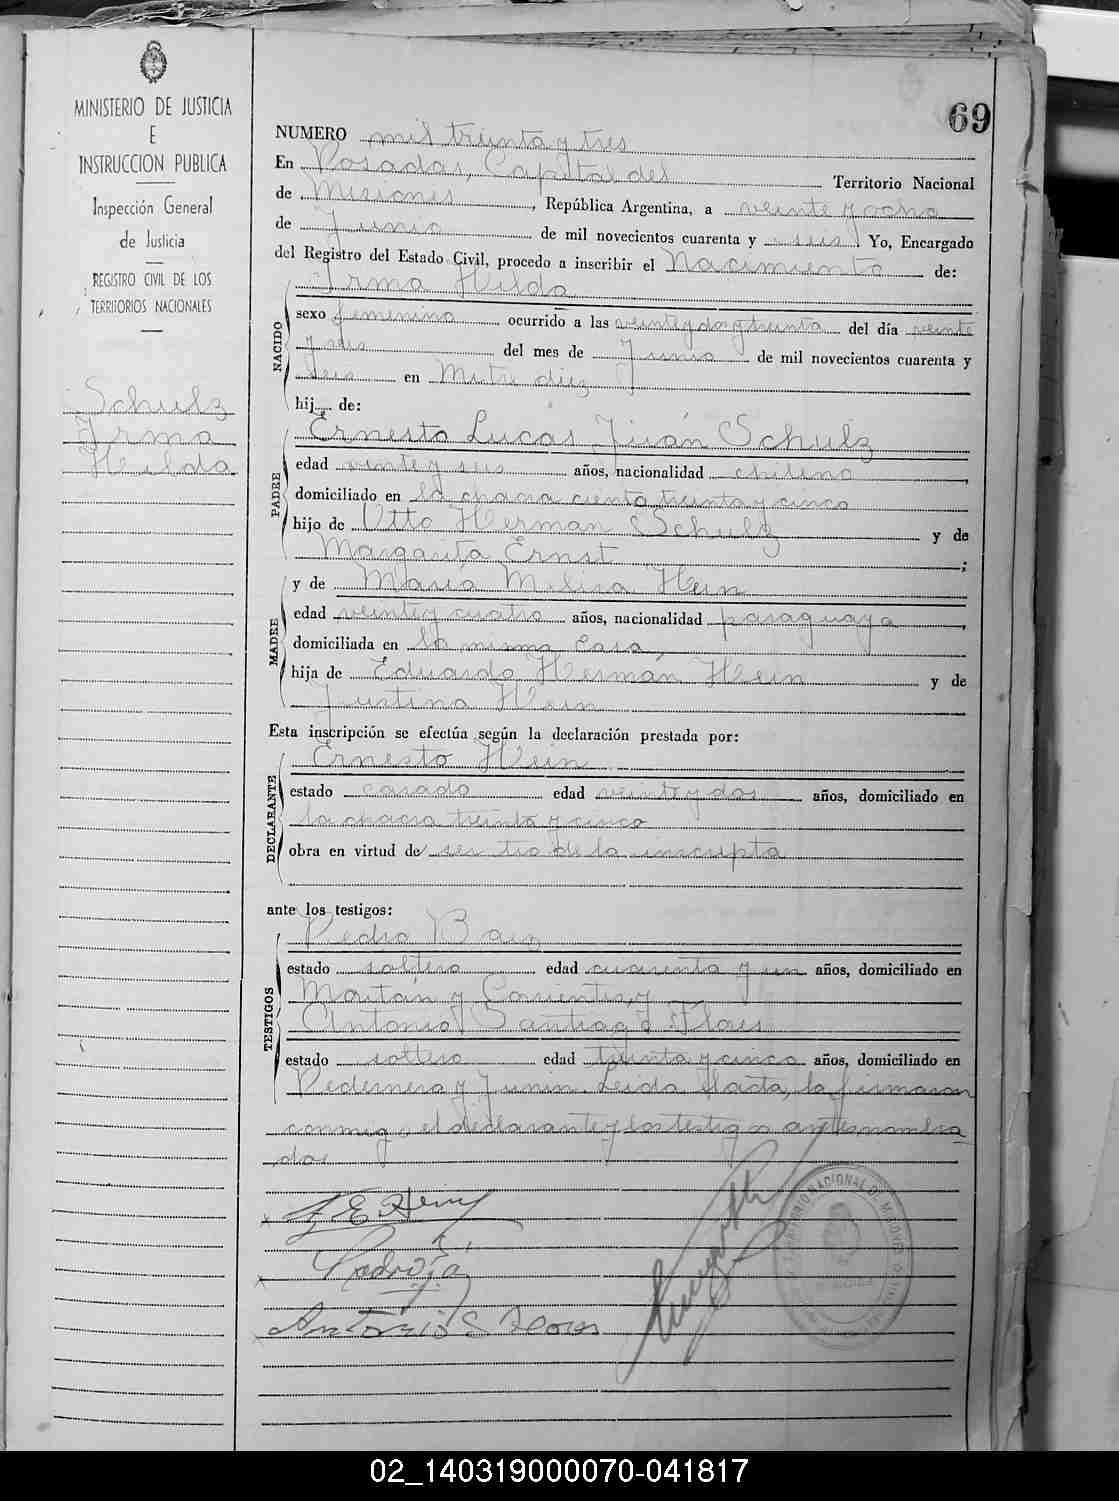 69
MINISTERIO DE JUSTICIA
E
INSTRUCCION PUBLICA
Inspección General
de Justicia
REGISTRO CIVIL DE LOS
TERRITORIOS NACIONALES
Schulz
Irma
Hilda
NUMERO mil treinta y tres
En Posadas, Capital del Territorio Nacional
de Misiones, República Argentina, a veinte y ocho
de Junio de mil novecientos cuarenta y seis. Yo, Encargado
del Registro del Estado Civil, procedo a inscribir el Nacimiento de:
NACIDO
Irma Hilda
sexo femenino ocurrido a las veinte y dos y treinta del día veinte
y seis del mes de Junio de mil novecientos cuarenta y
seis en Mitre diez
hij de:
PADRE
Ernesto Lucas Juán Schulz
edad veinte y seis años, nacionalidad chileno,
domiciliado en la chacra ciento treinta y cinco
hijo de Otto Herman Schulz y de
Margarita Ernst;
MADRE
y de María Melisa Hein
edad veinte y cuatro años, nacionalidad paraguaya,
domiciliada en la misma casa,
hija de Eduardo Hermán Hein y de
Justina Hein
Esta inscripción se efectúa según la declaración prestada por:
DECLARANTE
Ernesto Hein
estado casado edad veinte y dos años, domiciliado en
la chacra treinta y cinco
obra en virtud de ser tio de la inscripta
ante los testigos:
TESTIGOS
Pedro Baez
estado soltero edad cuarenta y un años, domiciliado en
y Corrientes, y
Antonio Santiago Flores
estado soltero edad treinta y cinco años, domiciliado en
Pedernera y Junin. Leida el acta, la firmaron
conmigo el declarante y los testigos antes nombra
dos
E Hein
Antonio S Flores
TERRITORIO NACIONAL DE MISIONES
02_140319000070-041817